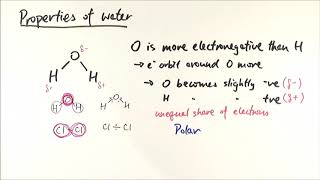 Properties of water
O δ-
H H
δ+ δ+
O
H H
H O H
Cl Cl Cl ÷ Cl
O is more electronegative than H
→ e⁻ orbit around O more
→ O becomes slightly -ve (δ-)
H " " +ve (δ+)
unequal share of electrons
Polar